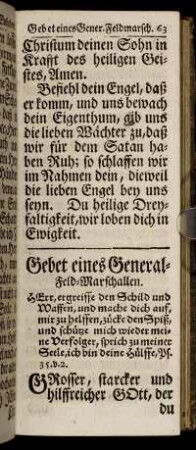 Gebet eines Gener. Feldmarsch. 63
Christum deinen Sohn in
Krafft des heiligen Gei-
stes, Amen.
Befiehl dein Engel, daß
er komm, und uns bewach
dein Eigenthum, gib uns
die lieben Wächter zu, daß
wir für dem Satan ha-
ben Ruh; so schlaffen wir
im Nahmen dein, dieweil
die lieben Engel bey uns
seyn. Du heilige Drey-
faltigkeit, wir loben dich in
Ewigkeit.
Gebet eines General-
Feld-Marschallen.
HErr, ergreiffe den Schild und
Waffen, und mache dich auf,
mir zu helffen, zücke den Spiß,
und schütze mich wieder mei-
ne Verfolger, sprich zu meiner
Seele, ich bin deine Hülffe, Ps.
35. v. 2.
GRosser, starcker und
hilffreicher GOtt, der
du